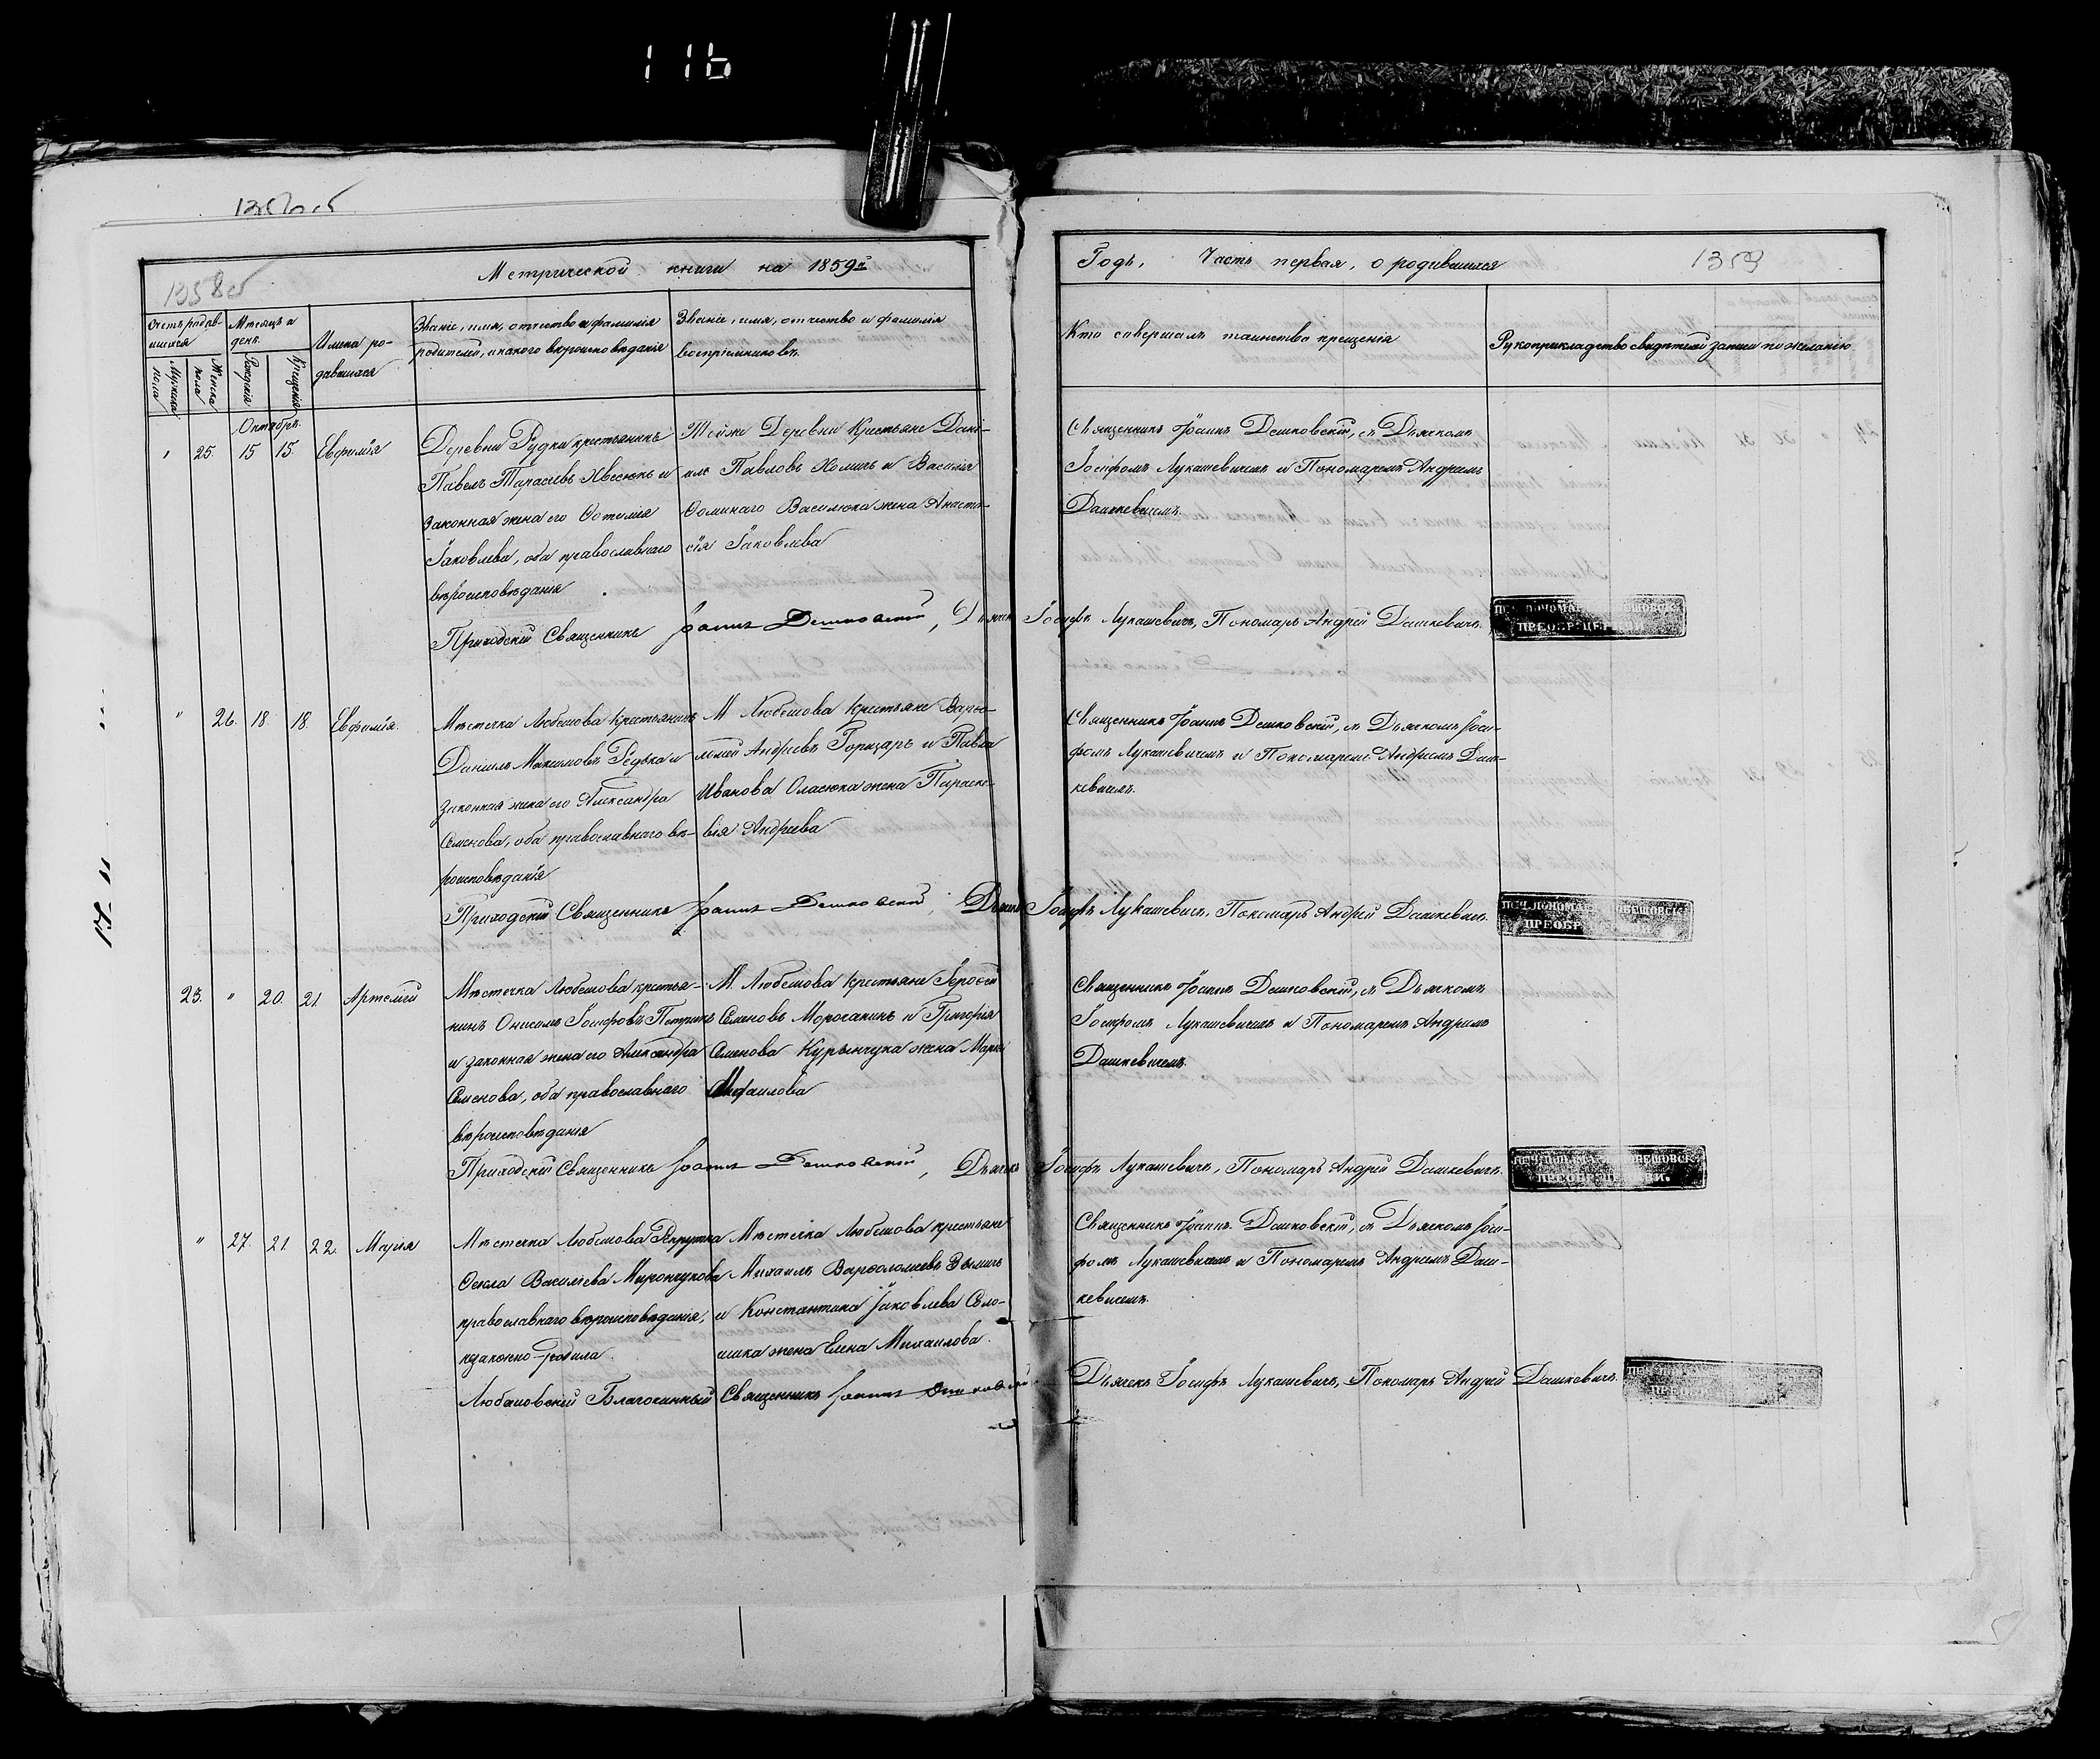 116
1358об
Метрической книги на 1859й
Годъ, Часть первая, о родившихся
1359
Счетъ родив-
шихся
Мѣсяцъ и
день
Имена ро-
дившихся
Званіе, имя, отчество и фамилія
родителей, и какого вѣроисповѣданія
Званіе, имя, отчество и фамилія
воспріемниковъ.
Кто совершалъ таинство крещенія
Рукоприкладство свидѣтелей записи по желанію
Мужска
пола
Женска
пола
Рожденія
Крещенія
Октябрь.
" 25. 15 15. Евфимія
Деревни Рудки крестьянинъ
Павелъ Тарасіевъ Хвесюкъ и
законная жена его Фотинія
Іаковлева, оба православнаго
вѣроисповѣданія
Тойже Деревни Крестьяне Дані-
илъ Павловъ Хомичъ и Василія
Фоминаго Василюка жена Анаста-
сія Іаковлева
Священникъ Іоаннъ Дешковскій, съ Дьячкомъ
Іосифомъ Лукашевичемъ и Пономаремъ Андреемъ
Дашкевичемъ.
Приходскій Священникъ Іоаннъ Дешковскій, Дьячекъ Іосифъ Лукашевичъ, Пономарь Андрей Дашкевичъ.
ПРЕОБР. ЦЕРКВИ.
" 26. 18. 18 Евфимія.
Мѣстечка Любешова Крестьянинъ
Даніилъ Максимовъ Редька и
законная жена его Александра
Семенова, оба православнаго вѣ-
роисповѣданія
М. Любешова Крестьяне Варѳо-
ломей Андреевъ Горщаръ и Павла
Иванова Оласюка жена Параске-
вія Андреева
Священникъ Іоаннъ Дешковскій, съ Дьячкомъ Іоси-
фомъ Лукашевичемъ и Пономаремъ Андреемъ Даш-
кевичемъ.
Приходскій Священникъ Іоаннъ Дешковскій, Дьячекъ Іосифъ Лукашевичъ, Пономарь Андрей Дашкевичъ.
23. " 20. 21 Артемій
Мѣстечка Любешова крестья-
нинъ Онисимъ Іосифовъ Петрикъ
и законная жена его Александра
Семенова, оба православнаго
вѣроисповѣданія
М. Любешова Крестьяне Іероѳей
Семеновъ Морочанинъ и Григорія
Семенова Курынчука жена Марія
Михаилова
Священникъ Іоаннъ Дешковскій, съ Дьячкомъ
Іосифомъ Лукашевичемъ и Пономаремъ Андреемъ
Дашкевичемъ.
Приходскій Священникъ Іоаннъ Дешковскій, Дьячекъ Іосифъ Лукашевичъ, Пономарь Андрей Дашкевичъ.
ПРЕОБР. ЦЕРКВИ.
" 27. 21. 22. Марія
Мѣстечка Любешова Рекрутка
Ѳекла Васильева Мирончукова
православнаго вѣроисповѣданія,
незаконно-родила.
Мѣстечка Любешова крестьяне
Михаилъ Варѳоломеевъ
и Константина Іаковлева Соло-
шика жена Елена Михаилова.
Священникъ Іоаннъ Дешковскій, съ Дьячкомъ Іоси-
фомъ Лукашевичемъ и Пономаремъ Андреемъ Даш-
кевичемъ.
Любешовскій Благочинный Священникъ Іоаннъ Дешковскій Дьячекъ Іосифъ Лукашевичъ, Пономарь Андрей Дашкевичъ.